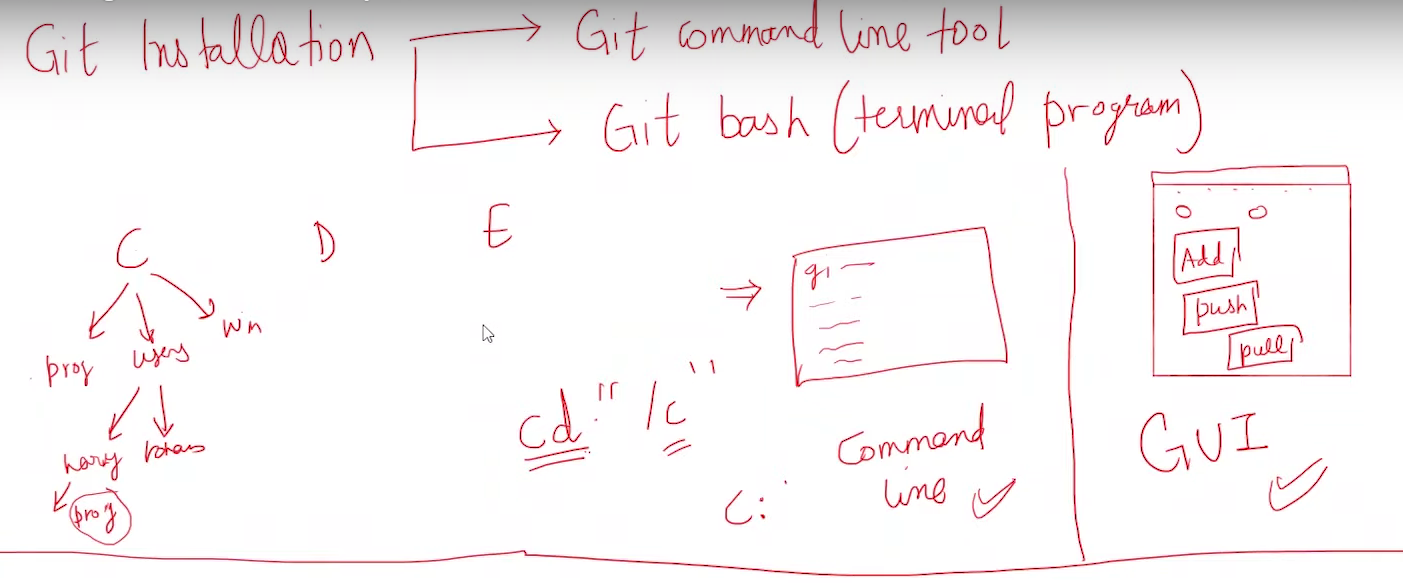 Git Installation
Git command line tool
Git bash (terminal program)
C
D
E
prog
users
win
harry
prog
cd "/c"
C:
gi
Command
line
Add
push
pull
GUI